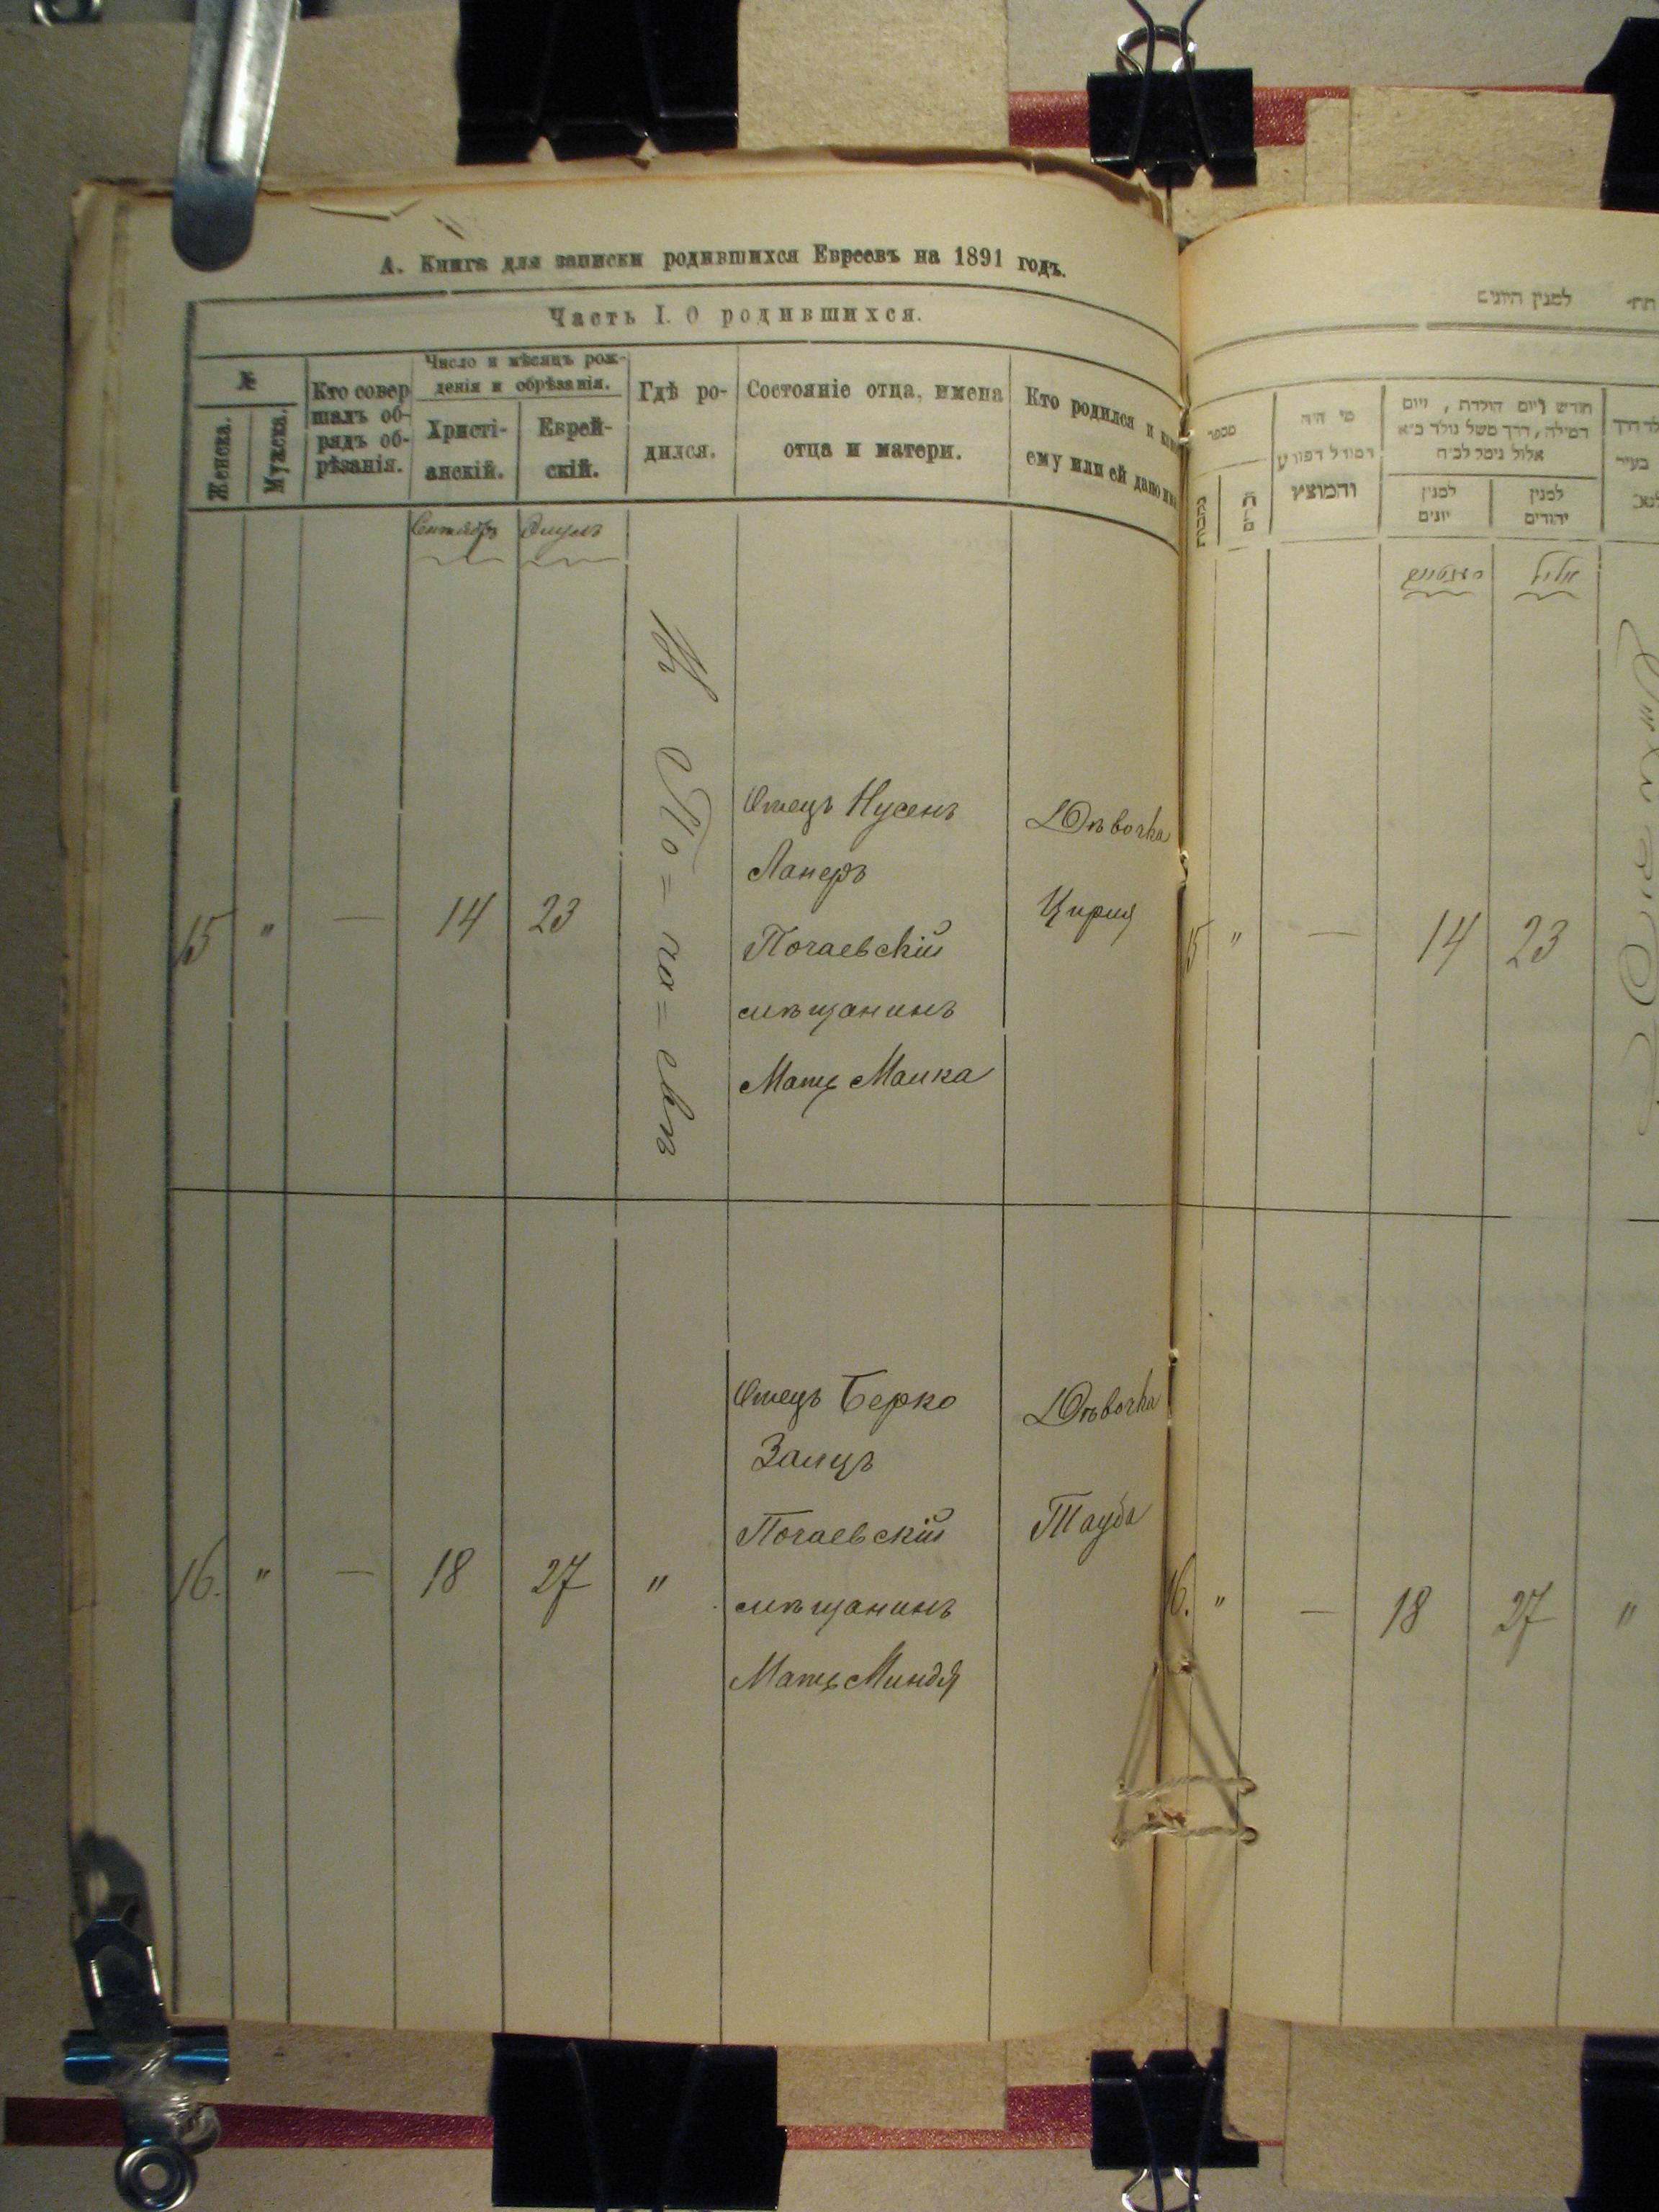 А. Книга для записки родившихся Евреевъ на 1891 годъ.
Часть I. О родившихся.
№
Женска.
Мужска.
Кто совер
шалъ об-
рядъ об-
рѣзанія.
Число и мѣсяцъ рож-
денія и обрѣзанія.
Христі-
анскій.
Еврей-
скій.
Гдѣ ро-
дился.
Состояніе отца, имена
отца и матери.
Кто родился и
ему или ей дано
Сентябрь
Элулъ
Въ М
По=ча=евѣ
15 " — 14 23
Отецъ Нусенъ
Ланеръ
Почаевскій
мѣщанинъ
Мать Малка
Дѣвочка
Цирля
16. " — 18 27 "
Отецъ Берко
Залцъ
Почаевскій
мѣщанинъ
Мать Миндя
Дѣвочка
Тауба
למנין היונים
מספר
נקבות
מי היה
המוהל הפורע
והמוצץ
חודש ויום הולדת, ויום
המילה, דרך משל נולד כ״א
אלול נימל לכ״ח
למנין
יונים
למנין
יהודים
בעיר
אלול
15 " — 14 23
16. " — 18 27 "